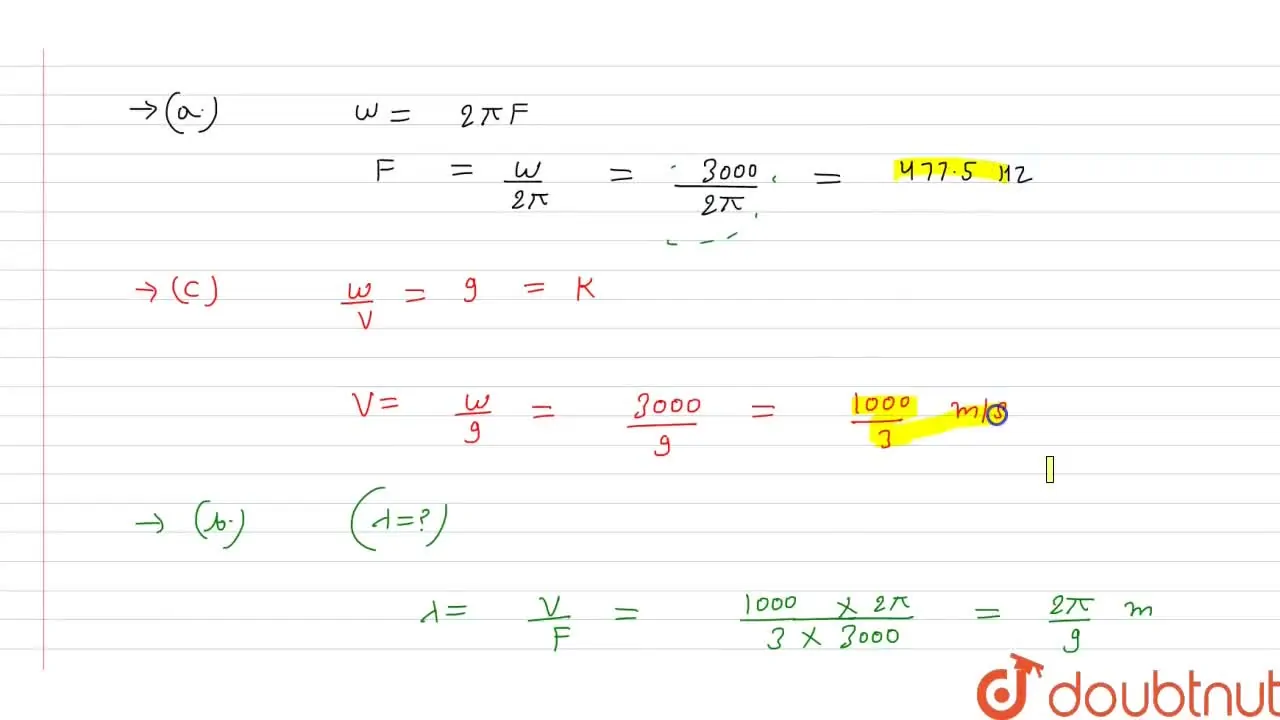 → (a.) w = 2πF
F = w/2π = 3000/2π = 477.5 Hz
→ (C) w/V = 9 = K
V = w/9 = 3000/9 = 1000/3 m/s
→ (b.) (λ = ?)
λ = V/F = 1000 × 2π/3 × 3000 = 2π/9 m
doubtnut